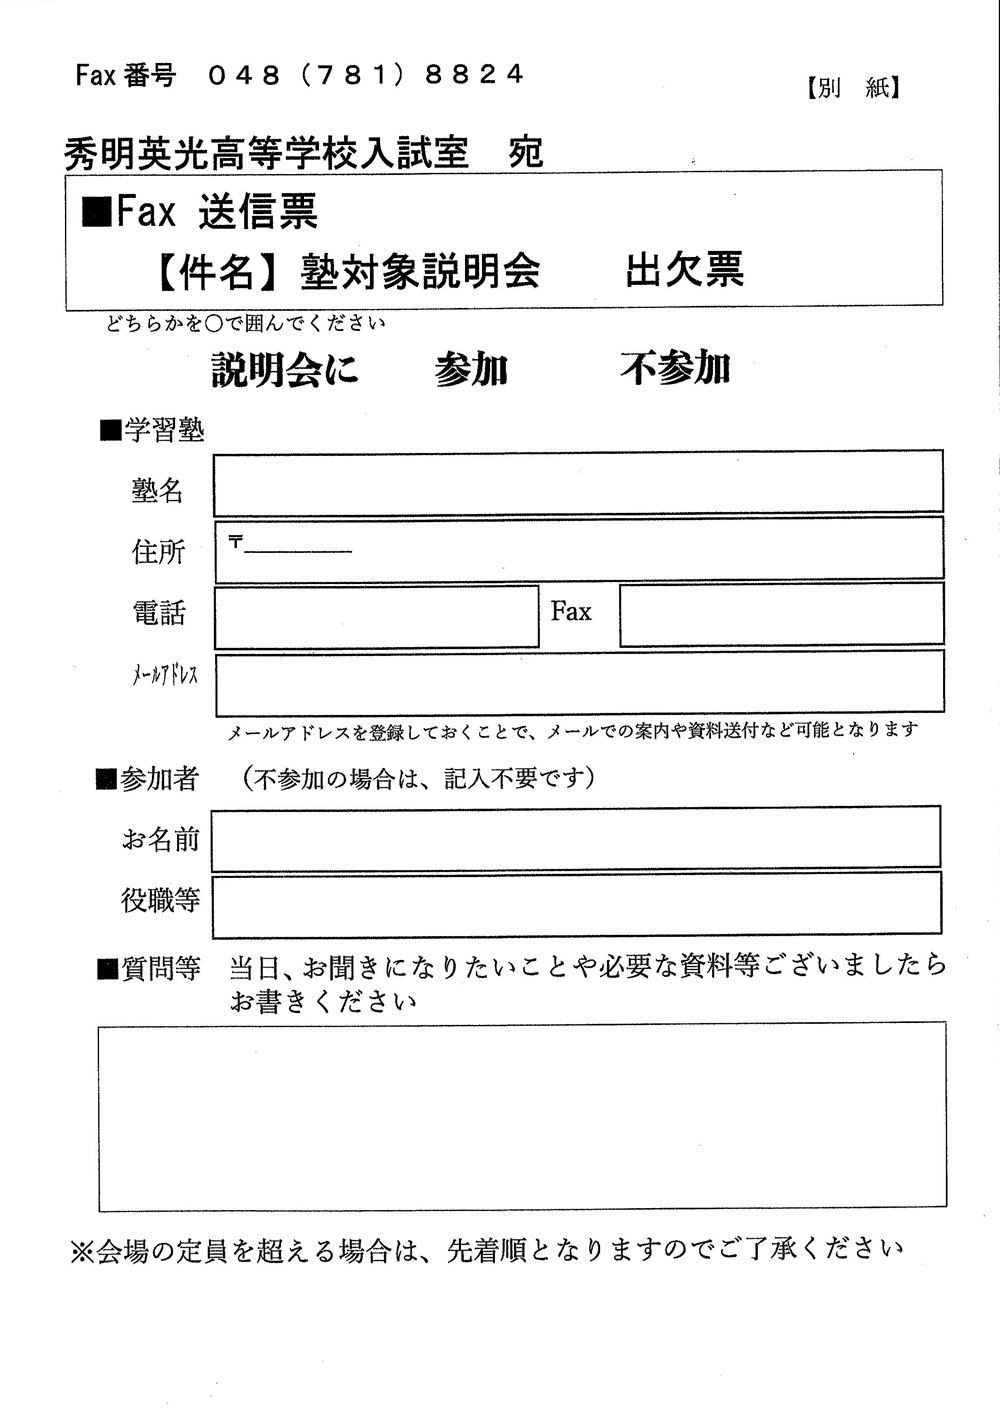 Fax 番号　０４８（７８１）８８２４
【別　紙】
秀明英光高等学校入試室　宛
■Fax 送信票
【件名】塾対象説明会　　出欠票
どちらかを〇で囲んでください
説明会に　　参加　　　不参加
■学習塾
塾名
住所　〒__________
電話　Fax
ﾒｰﾙｱﾄﾞﾚｽ
メールアドレスを登録しておくことで、メールでの案内や資料送付など可能となります
■参加者　（不参加の場合は、記入不要です）
お名前
役職等
■質問等　当日、お聞きになりたいことや必要な資料等ございましたら
お書きください
※会場の定員を超える場合は、先着順となりますのでご了承ください